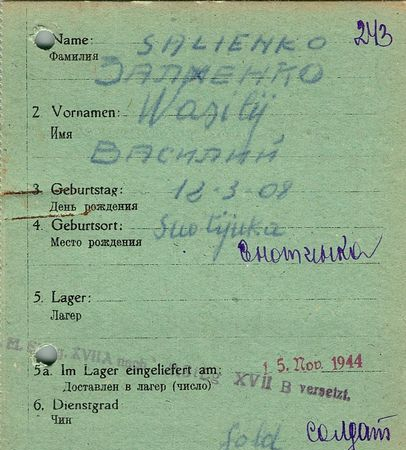 1. Name: SALIENKO 243
Фамилия ЗАЛЖЕНКО
2. Vornamen: Wasilij
Имя ВАСИЛИЙ
3. Geburtstag: 18-3-08
День рождения
4. Geburtsort:
Место рождения
5. Lager:
Лагер
XVII A nach
5a. Im Lager eingeliefert am: 15. Nov. 1944
Доставлен в лагер (число) XVII B versetzt.
6. Dienstgrad
Чин Sold солдат